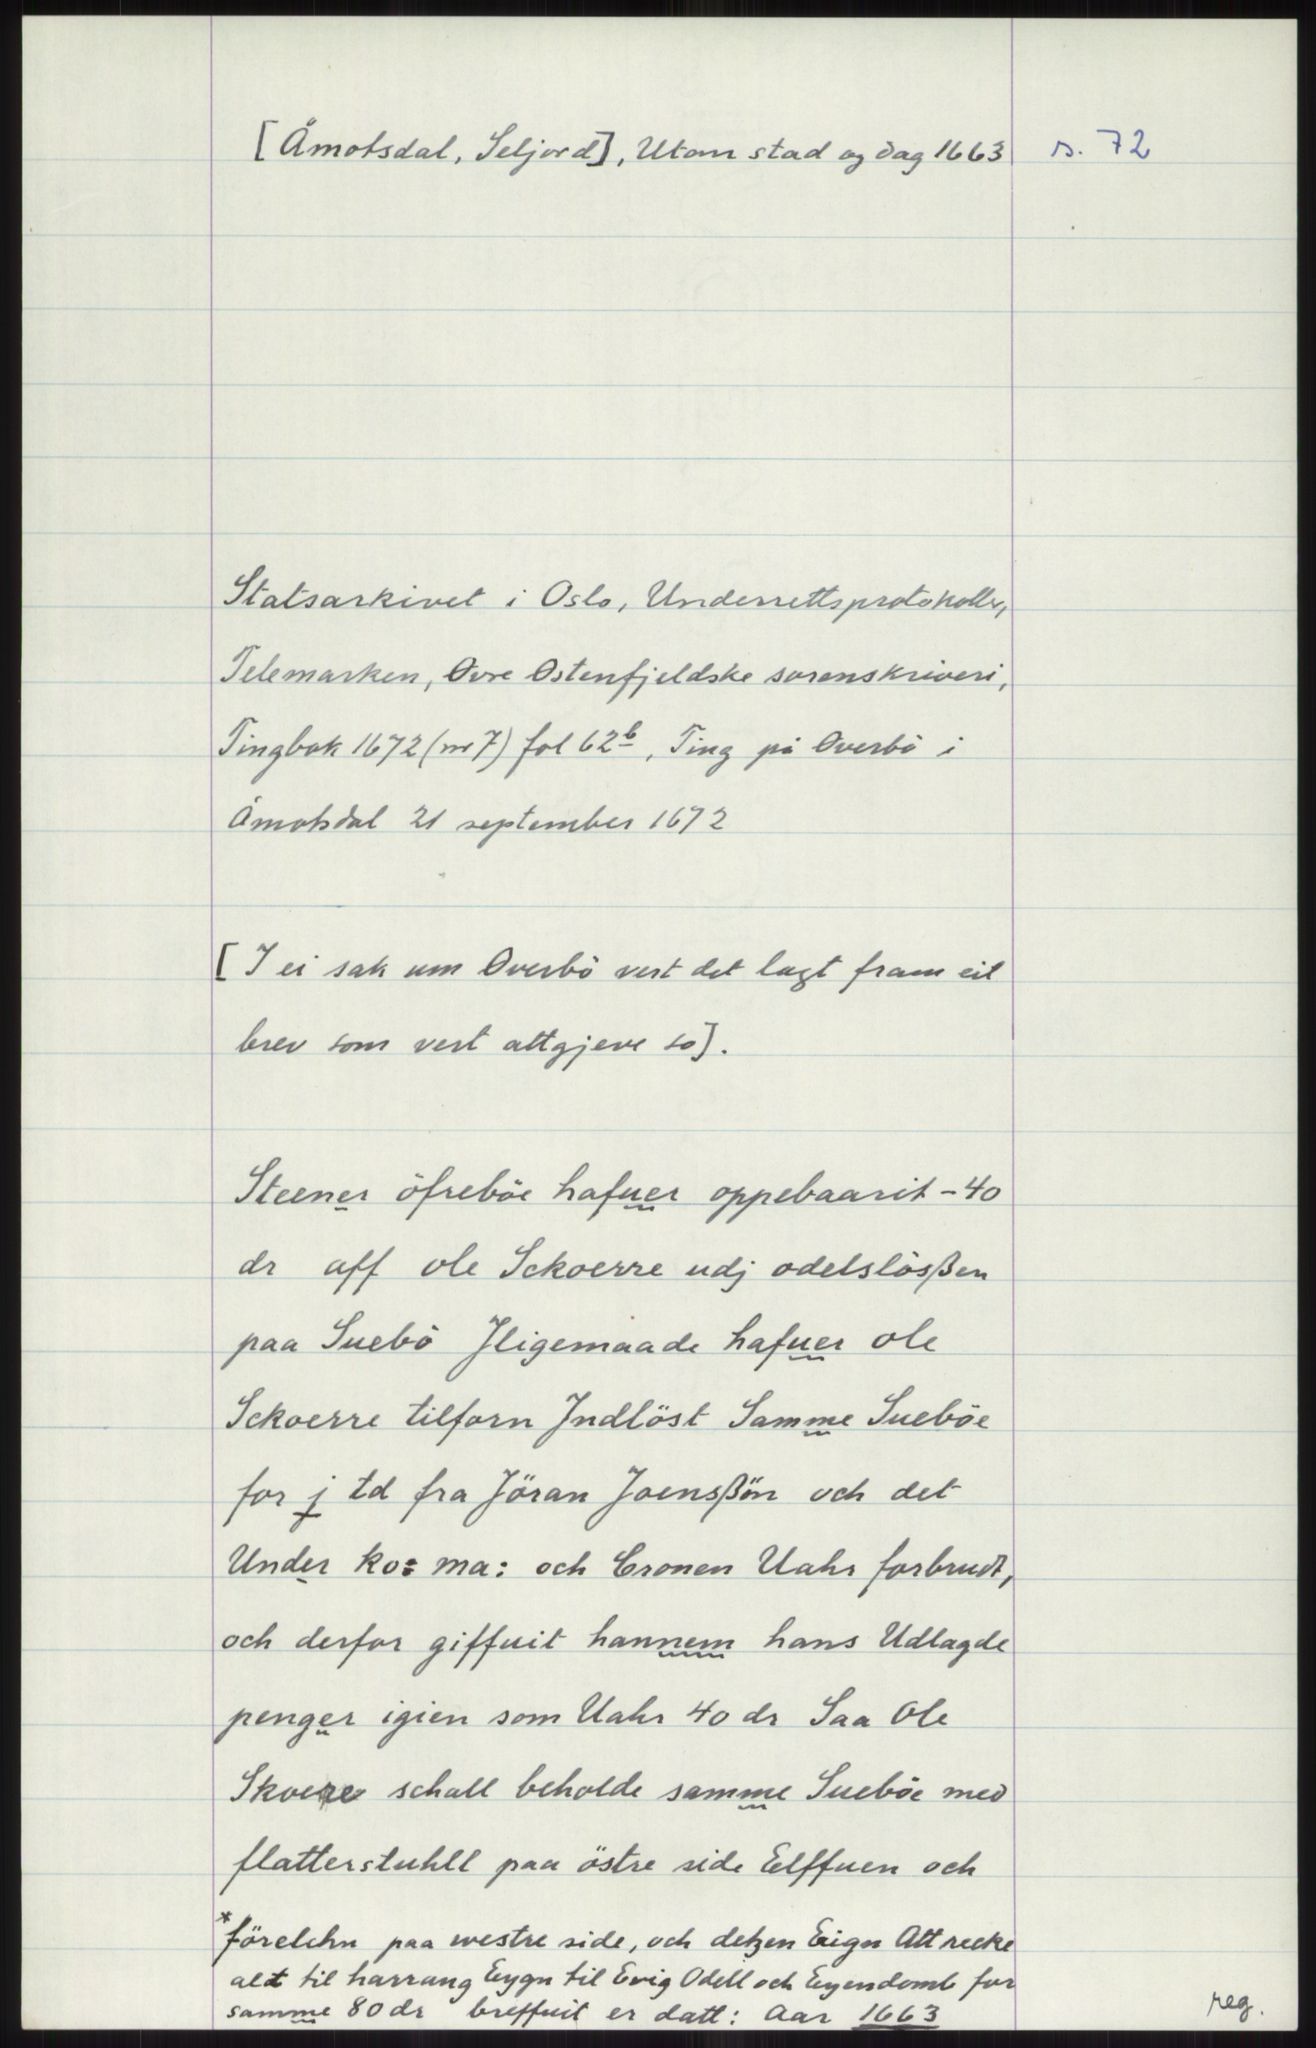 [Åmotsdal, Seljord], Utan stad og dag 1663 s. 72
Statsarkivet i Oslo, Underrettsprotokoller,
Telemarken, Øvre Østenfjeldske sorenskriveri,
Tingbok 1672 (nr 7) fol 62b, Ting på Øverbö i
Åmotsdal 21 september 1672
[I ei sak um Øverbö vert det lagt fram eit
brev som vert attgjeve so].
Steener öfreböe hafuer oppebaarit - 40
dr aff ole Sckoerre udj odelslösßen
paa Suebö Jligemaade hafuer ole
Sckoerre tilforn Jndlöst Samme Sueböe
for j td fra Jöran Joensßön och det
Under ko: ma: och Cronen Uahr forbrudt,
och derfor giffuit hannem hans Udlagde
penger igien som Uahr 40 dr Saa Ole
Skoere schall beholde samme Sueböe med
flatterstuhll paa östre side Elffuen och
*förelehn paa westre side, och detzen Eign Att recke
alt til harrang Eygn til Evig Odell och Eyendomb for
samme 80 dr breffuit er datt: Aar 1663
reg.